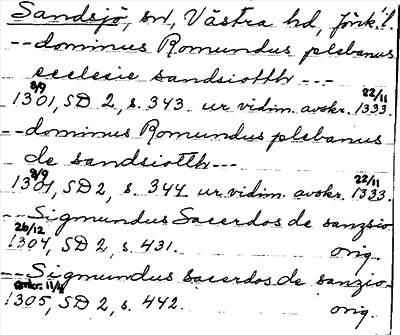 Sandsjö, sn, Västra hd, Jönk. l.
-- dominus Romundus plebanus
ecclesie sandsiotth ---
8/9 22/11
1301, SD 2, s. 343. ur vidim. avskr. 1333.
-- dominus Romundus plebanus
de sandsiotth ---
8/9 22/11
1301, SD 2, s. 344 ur vidim. avskr. 1333.
-- Sigmundus Sacerdos de sanzsio
26/12
1304, SD 2, s. 431. orig.
-- Sigmundus sacerdos de sanzio-
1305, SD 2, s. 442. orig.